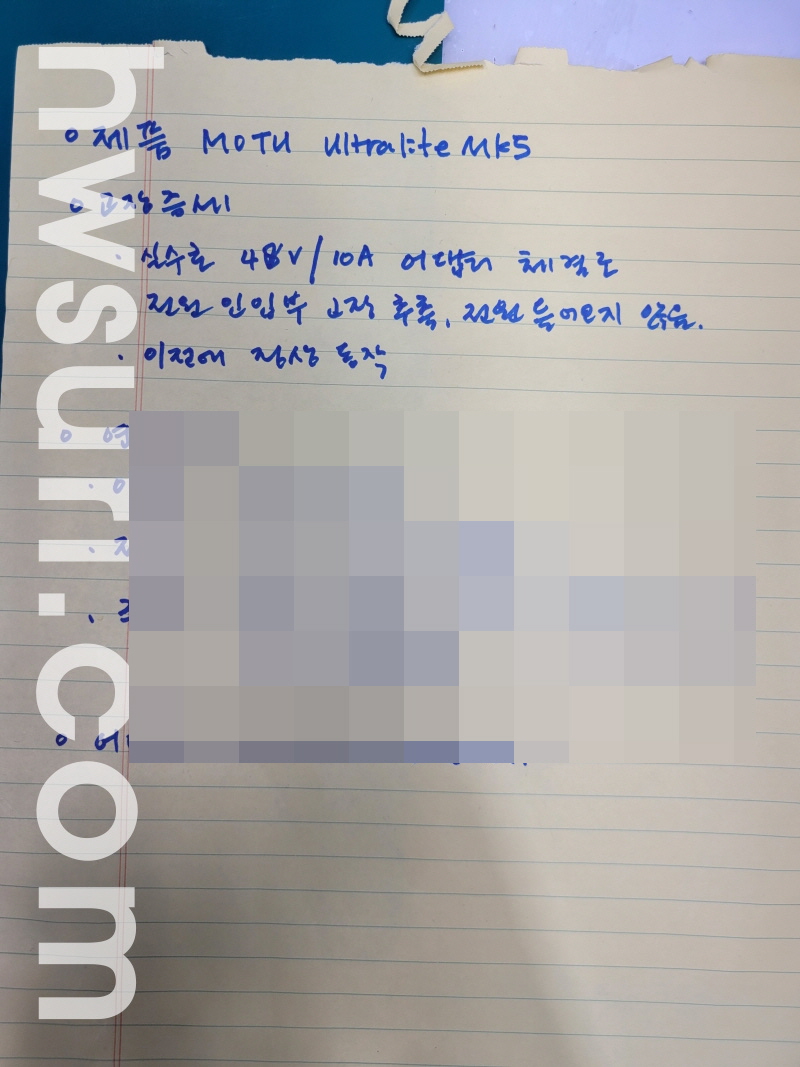 hwsuri.com
○ 제품 MOTU Ultralite Mk5
○ 고장증세
· 실수로 48V/10A 어댑터 체결로
전원 인입부 고장 추측, 전원 들어오지 않음.
· 이전에 정상 동작